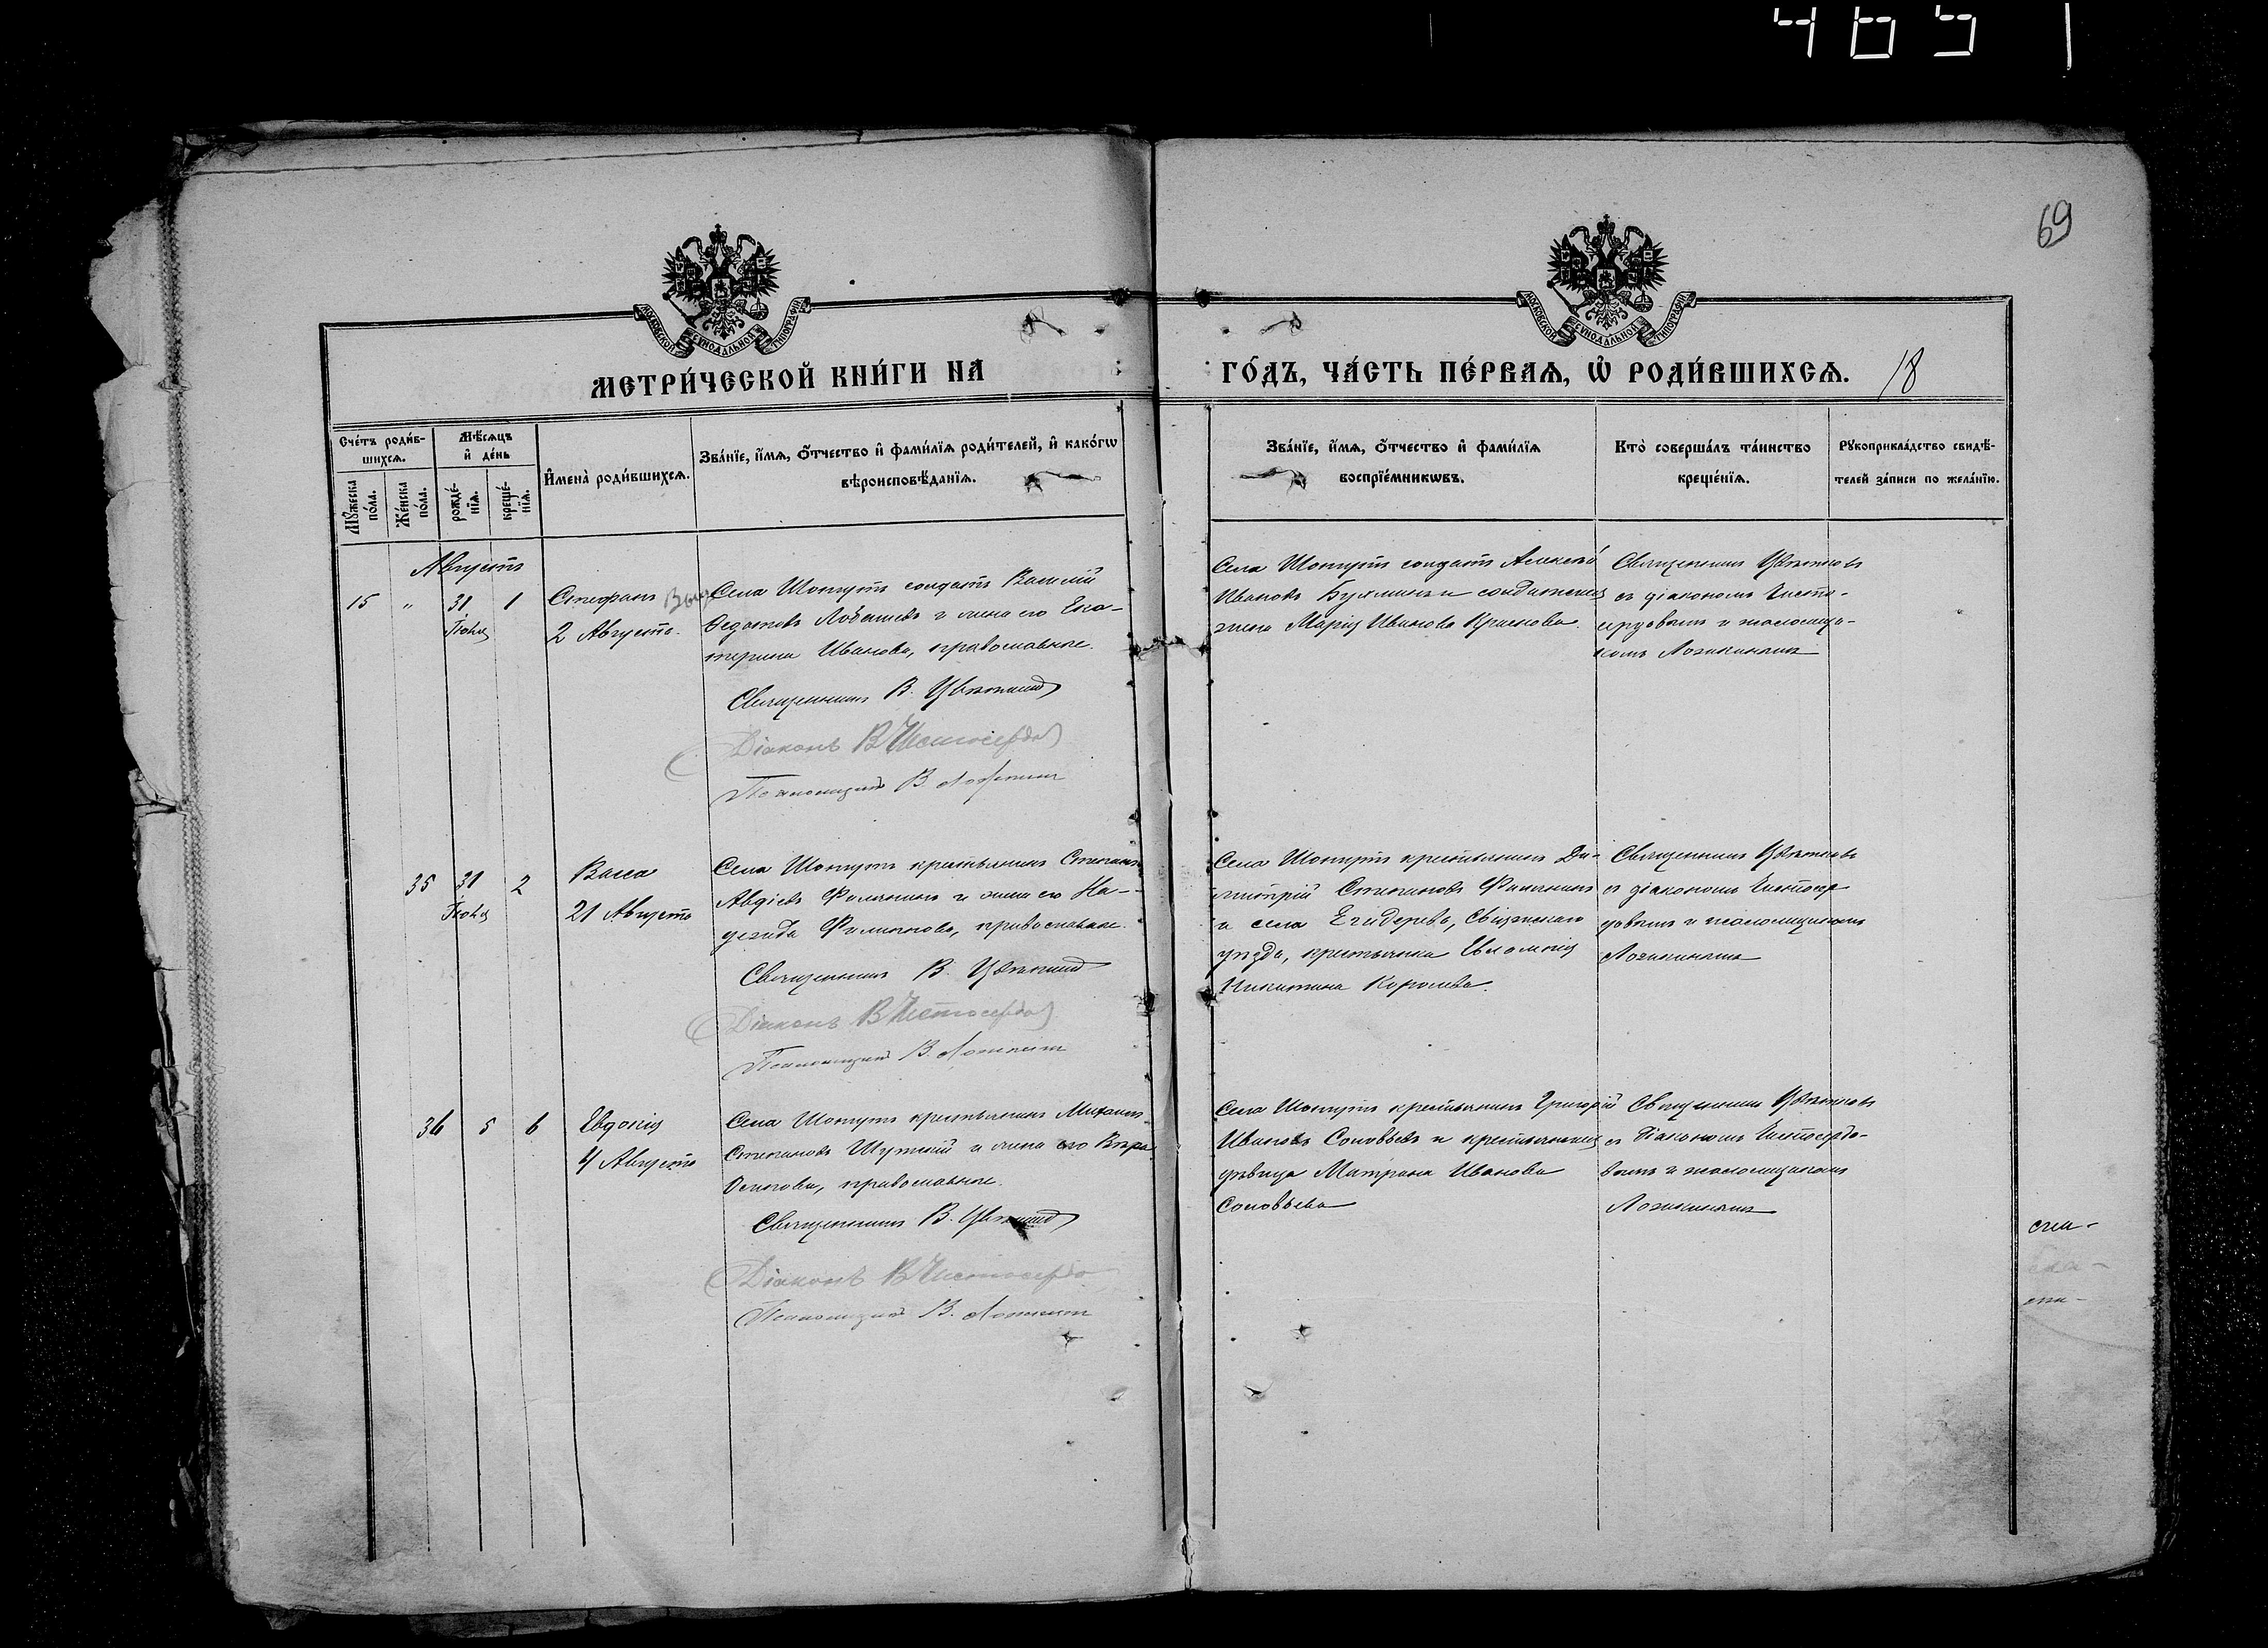 4651
69
МОСКОВСКОЙ СѴНОДАЛЬНОЙ ТИПОГРАФІИ
МОСКОВСКОЙ СѴНОДАЛЬНОЙ ТИПОГРАФІИ
МЕТРИ́ЧЕСКОЙ КНИ́ГИ НА
ГО́ДЪ, ЧА́СТЬ ПЕ́РВАѦ, Ѡ РОДИ́ВШИХСѦ.
18
Сче́тъ роди́в-
шихсѧ.
Мꙋ́жеска по́ла.
Же́нска по́ла.
Мѣ́сѧцъ и҆ де́нь
рожде́-нїѧ.
креще́-нїѧ.
И҆мена̀ роди́вшихсѧ.
Зва́нїе, и҆́мѧ, ѻ҆́тчество и҆ фами́лїѧ роди́телей, и҆ како́гѡ
вѣроисповѣ́данїѧ.
Зва́нїе, и҆́мѧ, ѻ҆́тчество и҆ фами́лїѧ
воспрїе́мникѡвъ.
Кто̀ соверша́лъ та́инство
креще́нїѧ.
Рꙋкоприкла́дство свидѣ́-
телей за́писи по жела́нїю.
Августъ
15 " 31 1
Іюля
Стефанъ
2 Августа.
Села Шонгутъ солдатъ Василій
Ѳедотовъ Лобашевъ и жена его Ека-
терина Иванова, православные.
Священникъ В. Цвѣтковъ
Діаконъ В Чистосердовъ
Псаломщикъ В. Ложкинъ
Села Шонгутъ солдатъ Алексѣй
Ивановъ и солдатская
жена Марія Иванова Краснова.
Священникъ Цвѣтковъ
съ діакономъ Чисто-
сердовымъ и псаломщи-
комъ Ложкинымъ
35 31 2
Іюля
Васса
21 Августа
Села Шонгутъ крестьянинъ Степанъ
Авдіевъ и жена его На-
дежда Филиппова, православные.
Священникъ В. Цвѣтковъ
Діаконъ В Чистосердовъ
Псаломщикъ В. Ложкинъ
Села Шонгутъ крестьянинъ Ди-
митрій Степановъ
и села Егидерева, Свіяжскаго
уѣзда, крестьянка
Никитина Королева.
Священникъ Цвѣтковъ
съ діакономъ Чистосер-
довымъ и псаломщикомъ
Ложкинымъ
36 5 6
Евдокія
4 Августа
Села Шонгутъ крестьянинъ Михаилъ
Степановъ и жена его Вѣра
Осипова, православные.
Священникъ В. Цвѣтковъ
Діаконъ В Чистосердо
Псаломщикъ В. Ложкинъ
Села Шонгутъ крестьянинъ Григорій
Ивановъ Соловьевъ и крестьянская
дѣвица Матрона Иванова
Соловьева
Священникъ Цвѣтковъ
съ діакономъ Чистосердо-
вымъ и псаломщикомъ
Ложкинымъ